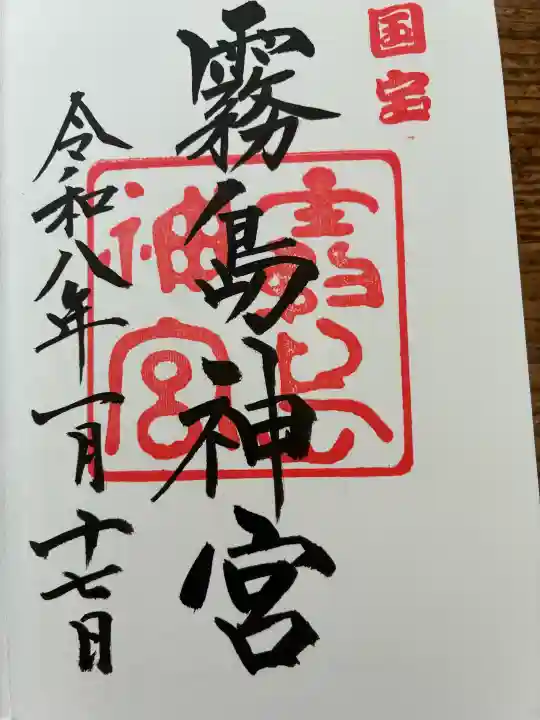 国宝
霧島神宮
霧島神宮
令和八年一月十七日